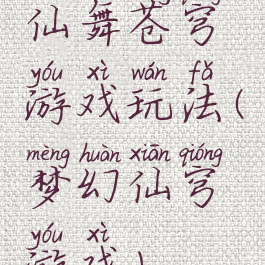 仙舞苍穹
yóu xì wán fǎ
游戏玩法(
mèng huàn xiān qióng
梦幻仙穹
yóu xì
游戏)